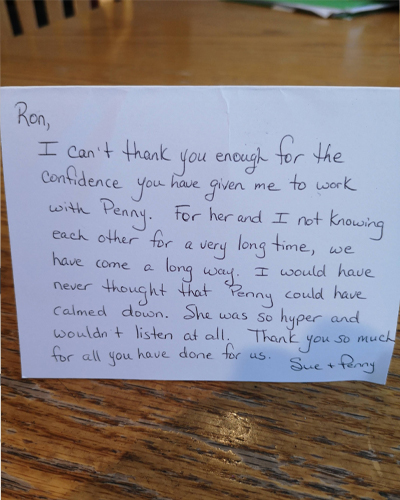 Ron,
I can't thank you enough for the
confidence you have given me to work
with Penny. For her and I not knowing
each other for a very long time, we
have come a long way. I would have
never thought that Penny could have
calmed down. She was so hyper and
wouldn't listen at all. Thank you so much
for all you have done for us. Sue + Penny